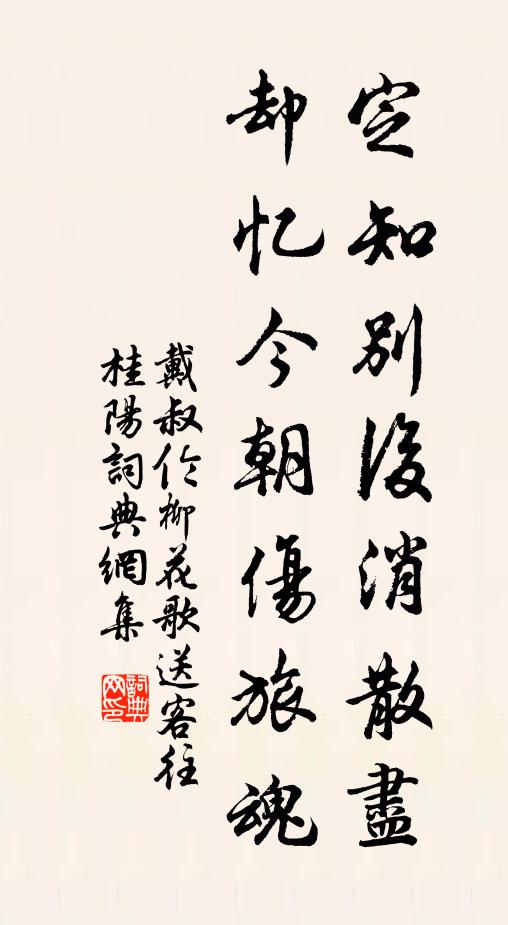 定知別後消散盡
却忆今朝傷旅魂
戴叔伦柳花歌送客往
桂陽詞典網集
詞典
网印